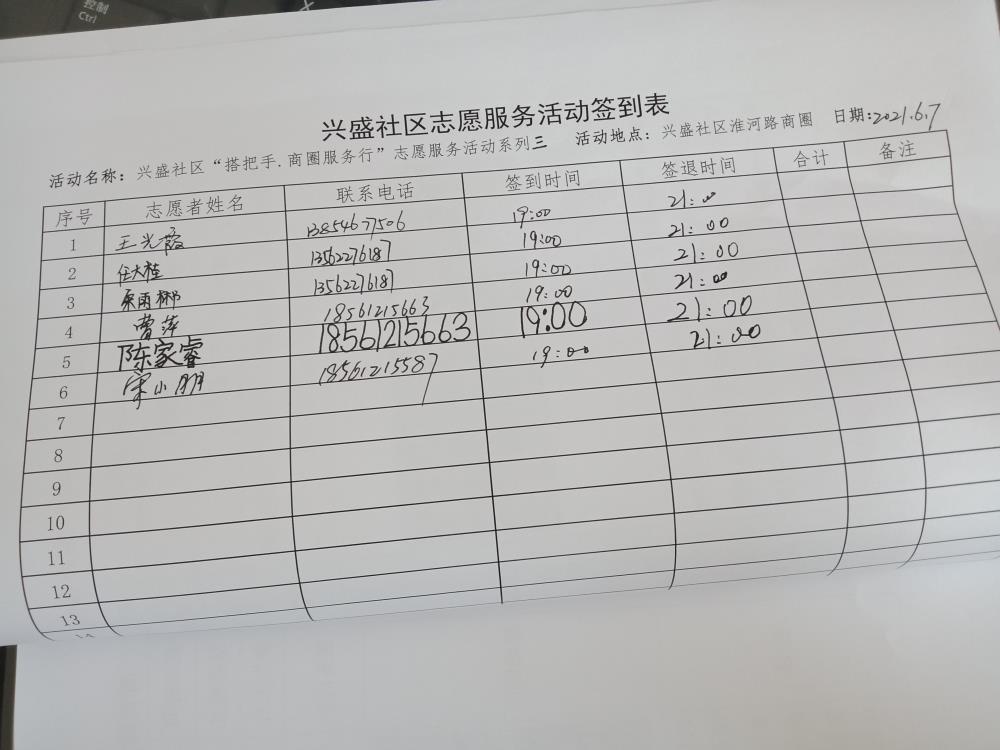 控制
Ctrl
兴盛社区志愿服务活动签到表
活动名称：兴盛社区“搭把手.商圈服务行”志愿服务活动系列三 活动地点：兴盛社区淮河路商圈 日期:2021.6.7
序号 志愿者姓名 联系电话 签到时间 签退时间 合计 备注
1 王光霞 13854677506 19:00 21:00
2 任大桂 13562276187 19:00 21:00
3 雨彬 13562276187 19:00 21:00
4 曹萍 18561215663 19:00 21:00
5 陈家睿 18561215663 19:00 21:00
6 宋小朋 18561215587 19:00 21:00
7
8
9
10
11
12
13
14